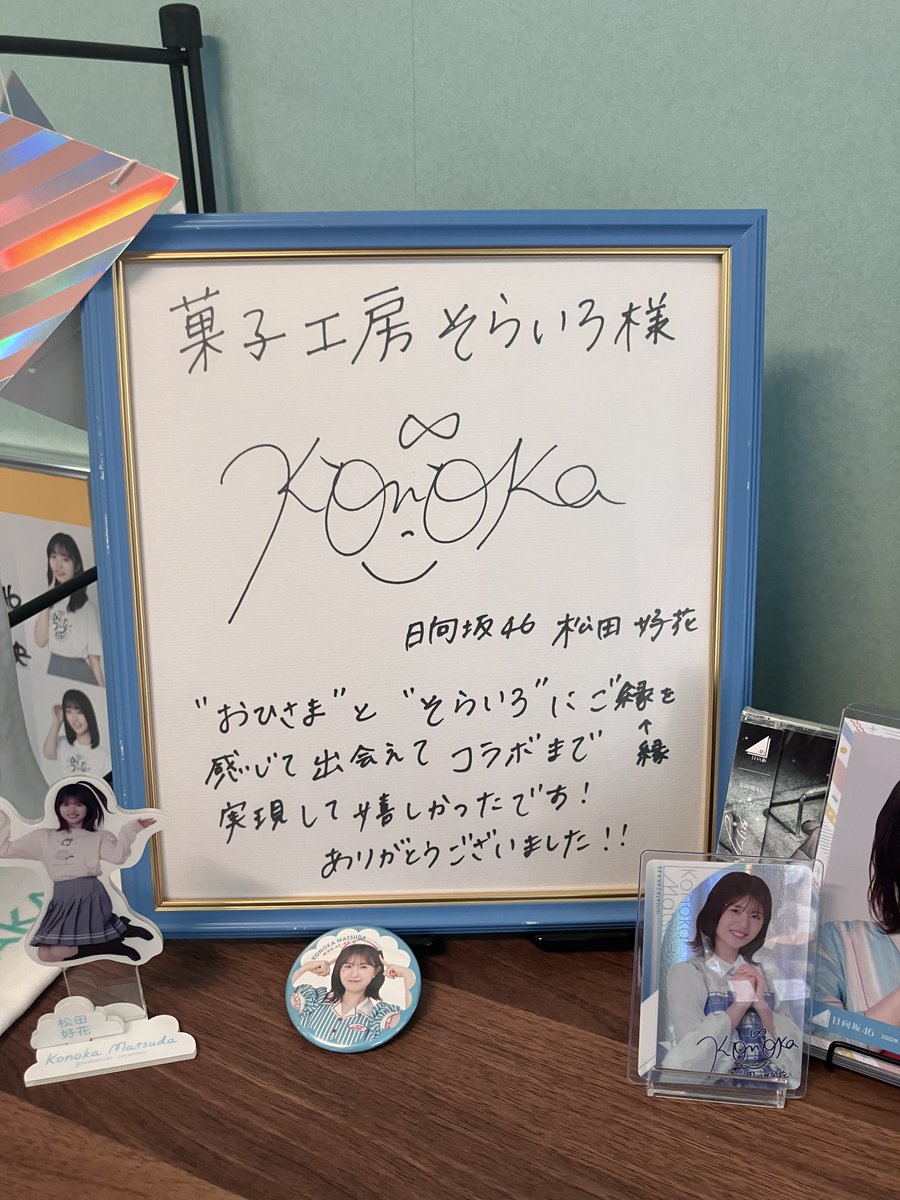 菓子工房 そらいろ様
Konoka
日向坂46 松田 好花
"おひさま"と"そらいろ"にご縁を
↑
縁
感じて出会えてコラボまで
実現して嬉しかったです!
ありがとうございました!!
松田
好花
Konoka Matsuda
graduation ceremony
KONOKA MATSUDA
HINATAZAKA46
Konoka
松田 好花
日向坂46
日向坂46